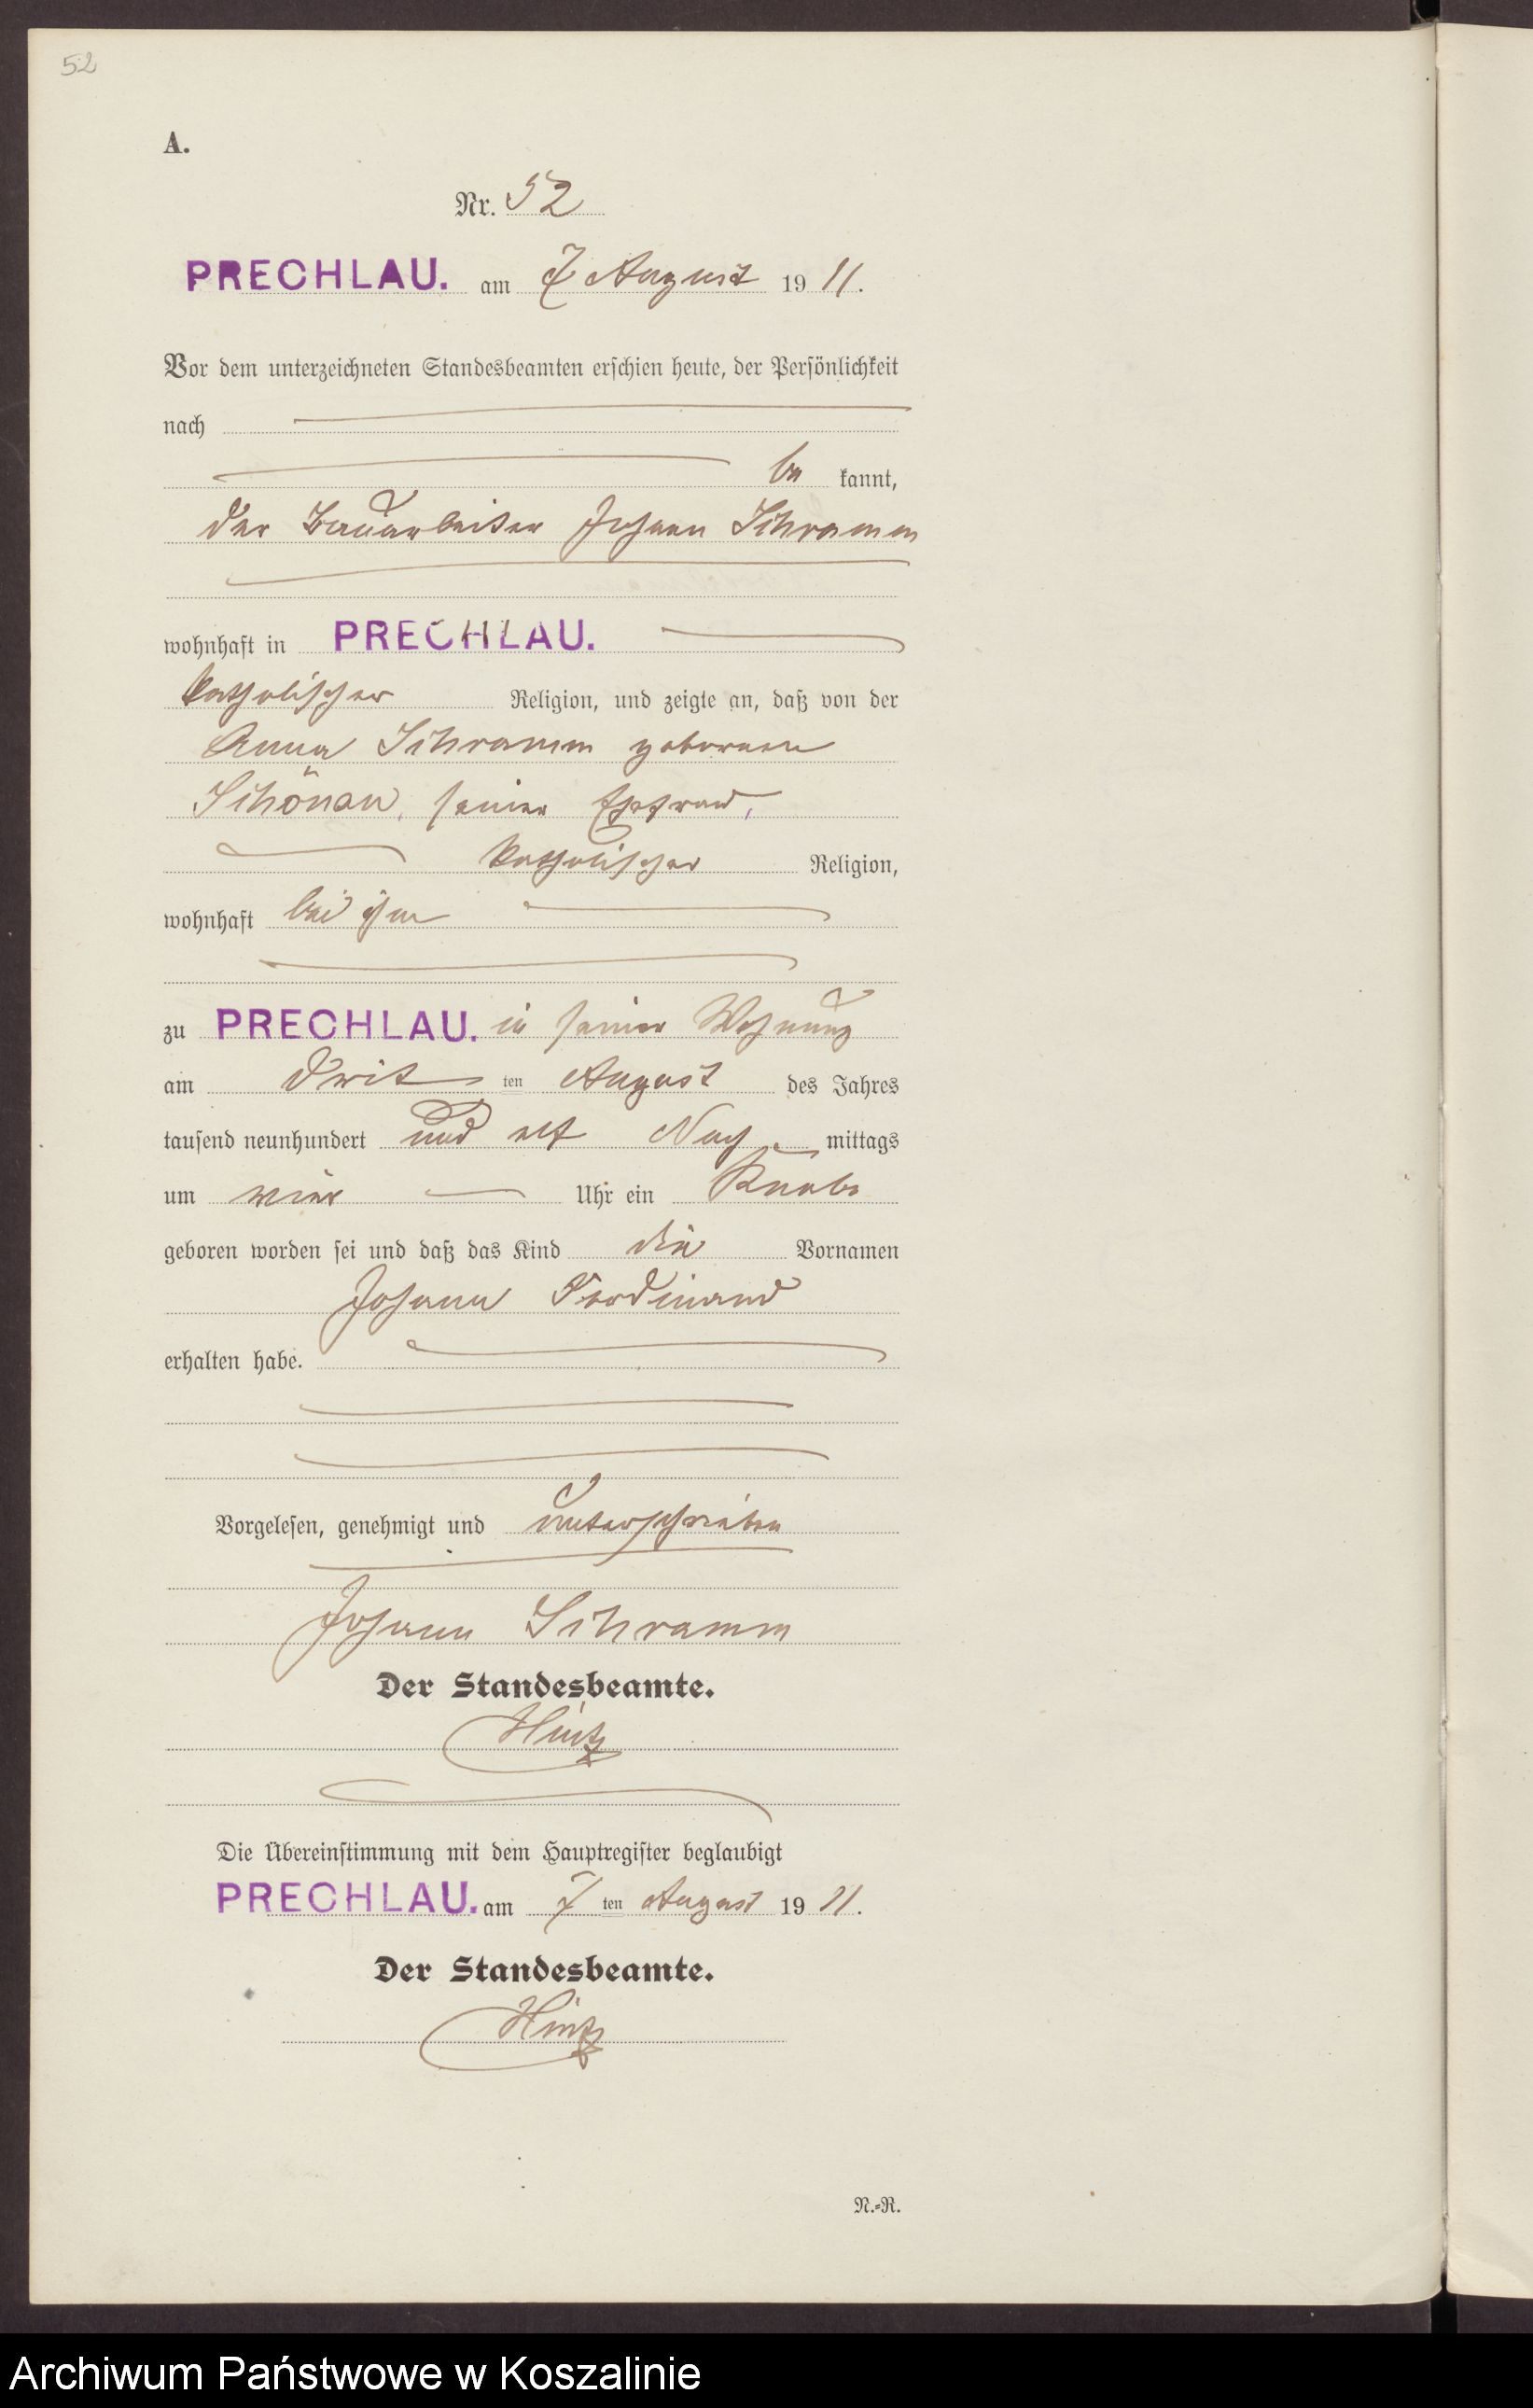 52
A.
Nr. 52
PRECHLAU. am 7 August 19 11.
Vor dem unterzeichneten Standesbeamten erschien heute, der Persönlichkeit
nach
be kannt,
der Bauarbeiter Johann Schramm
wohnhaft in PRECHLAU.
katholischer Religion, und zeigte an, daß von der
Anna Schramm geborenen
Schönau, seiner Ehefrau,
katholischer Religion,
wohnhaft bei ihm
zu PRECHLAU. in seiner Wohnung
am drit ten August des Jahres
tausend neunhundert und elf Nach mittags
um vier Uhr ein Knabe
geboren worden sei und daß das Kind die Vornamen
Johann Ferdinand
erhalten habe.
Vorgelesen, genehmigt und unterschrieben
Johann Schramm
Der Standesbeamte.
Hintz
Die Übereinstimmung mit dem Hauptregister beglaubigt
PRECHLAU. am 7 ten August 19 11.
Der Standesbeamte.
Hintz
N.=R.
Archiwum Państwowe w Koszalinie